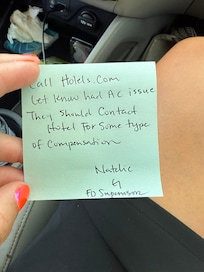 Call Hotels.Com
Let know had AC issue
They Should Contact
Hotel For Some type
of Compensation
Natalie
FD Supervisor